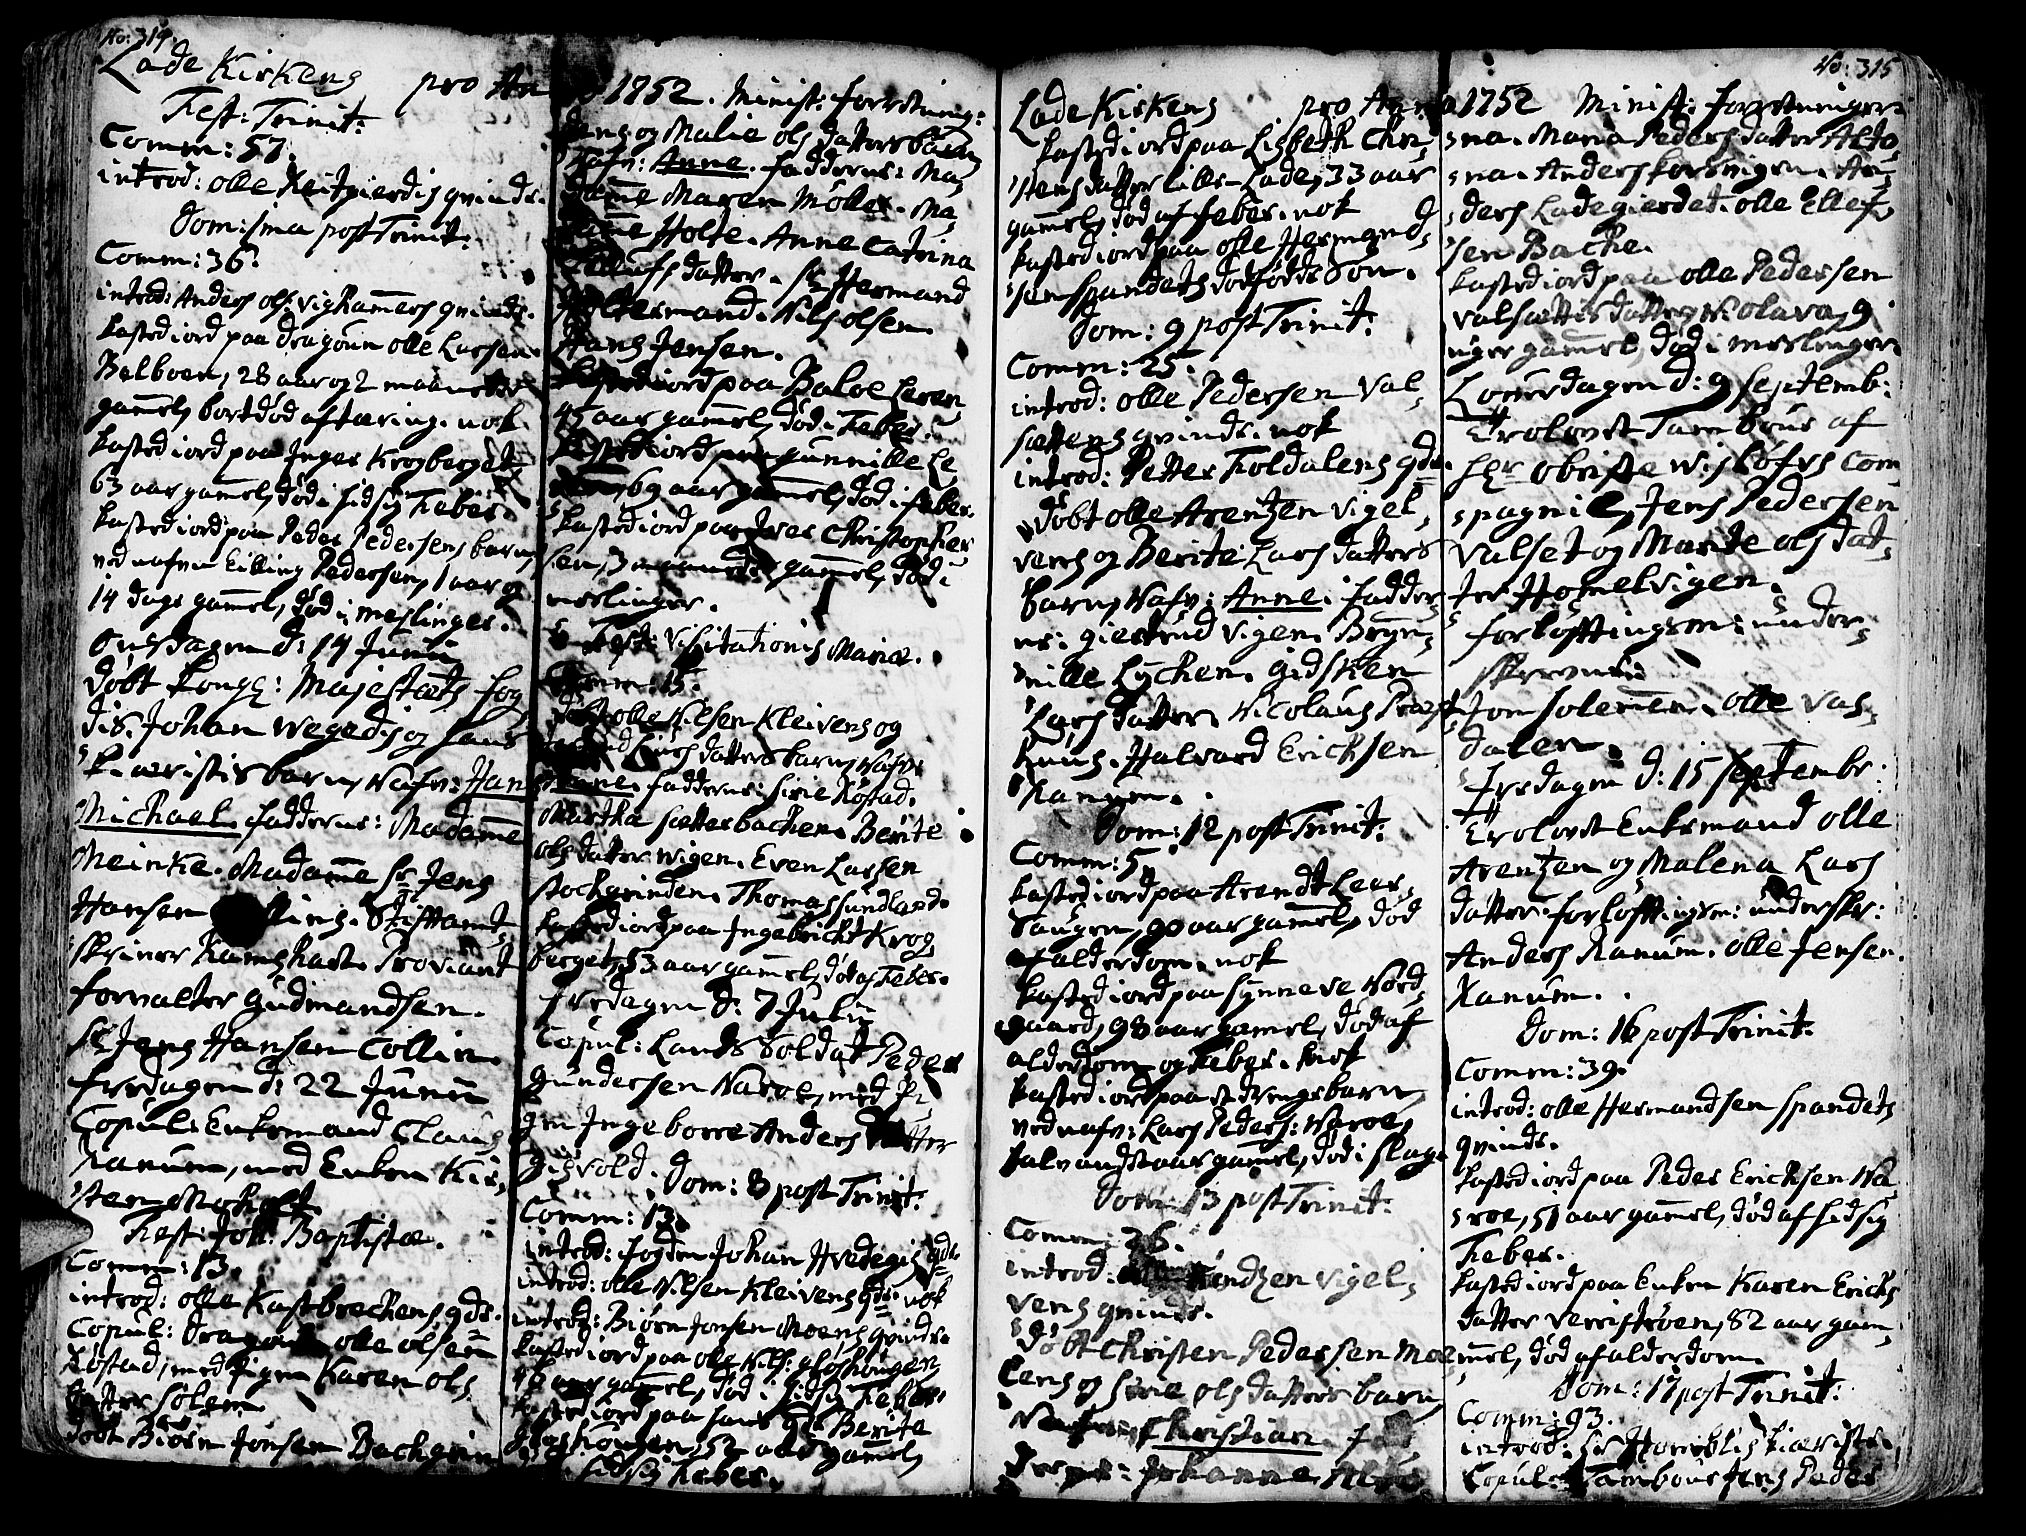 No: 314.
Lade Kirkens pro An
Fest: Trinit:
Comm: 57.
introd: olle Reitgierdis qvinde.
Dom: 1ma post Trinit:
Comm: 36.
introd: Anders ols: Vighammers qvinde.
kasted iord paa Dragoun olle Larsen
Balboen, 28 aar og 2 maaneder
gamel, bortdød af tæring. nok
kasted iord paa Inger Krogberget
63 aar gamel, død i hidsig Feber.
kasted iord paa Peder Pedersens barn,
ved nafvn Elling Pedersen, 1 aar og
14 dage gamel, død i meslinger.
Onsdagen d: 14 Junii
døbt Kongl: Majestæts fog,
dis. Johan Wegedis og hans
kiæristis barn, Nafn: Han
Michael. fadderne: Madame
Meinke. Madame Sr Jens
Hansen Stiftamt
skriver Ramshart. Proviant
forvalter Gudmandsen.
Sr Jens Hansen Collin.
fredagen d: 22 Junii
Copul: Enkemand Claus
Ranum, med Enken Kir,
sten Moholt
Fest: Joh: Baptistæ.
Comm: 13.
introd: olle Kastbrechens qde.
Copul: Dragoun olle olsen
Røstad, med Pigen Karen ols
datter Solem
døbt Biørn Jonsen Bachgrin
1752. Minist: forretning:
dens og Malie ols datters barn
Nafn: Anne. fadderne: Ma
dame Maren Möller. Ma
dame Holte. Anne Catrina
datter. Sr Hermand
Holtermand. Nils olsen.
Hans Jensen.
kasted iord paa Baloe Leren
45 aar gamel, død i Feber.
kasted iord paa Gunnille Le
69 aar gamel, død i feber.
kasted iord paa Iver Christopher
sen, 3 maaneder gamel, død i
meslinger.
Fest: Visitationis Mariæ.
Comm: 15.
døbt olle Nilsen Kleivens og
Lars datters barn, Nafn:
Anne. fadderne: Sirie Røstad.
Martha Sætterbachen. Berite
ols datter Wigen. Even Larsen
Stochgrinden. Thomas Sundland.
kasted iord paa Ingebricht Krog
berget, 53 aar gamel, død af Feber.
fredagen d: 7 Julii
Copul: Lands Soldat Peder
Gundersen Naroe, med Pi
gen Ingeborre Anders datter
Digrvold.
Dom: 8 post Trinit:
Comm: 13.
introd: fogden Johan Hvedegis qde
introd: olle Nilsen Kleivens qde. nok
introd: Biørn Jonsen Moens qvinde.
kasted iord paa ole Nils: Gloshougen
aar gamel, død i hidsig Feber.
kasted iord paa hans qde Berite
Gloshougen, 52 aar gamel,
hidsig Feber.
Lade Kirkens pro Anno
kasted iord paa Lisbeth Chri,
stens datter Lille-Lade, 33 aar
gamel, død af feber. nok
kasted iord paa olle Hermand,
sen Spandets dødfødde Søn.
Dom: 9 post Trinit:
Comm: 25.
introd: olle Pedersen Val,
sættens qvinde. nok
introd: Petter Foldalens qde.
døbt olle Arentzen Vigel,
vens og Berite Lars datters
barn, Nafn: Anne. fadder
ne: giertrud Vigen. Bryn,
nille Lychen. Gidsken
Lars datter. Nicolaus Præst
Ruus. Halvard Ericksen
Ranum.
Dom: 12 post Trinit:
Comm: 5.
kasted iord paa Arendt Leer,
Haugen, 90 aar gamel, død
af alderdom. nok
kasted iord paa Synneve Nord,
gaard, 98 aar gamel, død af
alderdom og Feber. nok
kasted iord paa et drengebarn,
ved nafn: Lars Peders: Naroe,
halvandet aar gamel, død i slage
Dom: 13 post Trinit:
Comm: 26.
introd: Arendtzen Vigel,
vens qvinde.
døbt Christen Pedersen Moe
lens og Sirie ols datters barn,
Nafn: Christian. fad
derne: Johanne Alto
No: 315
1752 Minist: forretninger.
na. Maria Peders datter Alto
na. Anders Korsvigen. An
ders Ladegierdet. olle Ellef,
sen Bache.
kasted iord paa olle Pedersen
Valsættis datter, Nicolava, 9
uger gammel, død i meslinger.
Løverdagen d: 9 Septemb:
Trolovet Tambour af
Her obriste Wisløfvs Com
pagnie, Jens Pedersen
Valset og Marite ols dat,
ter Homelvigen.
forloftningsm: under,
skrevne
Jon Solemen. olle Vas,
dalen.
fredagen d: 15 Septembr:
Trolovet Enkemand olle
Arentzen og Malena Lars
datter. forloftningsm: underskr:
Anders Ranum. olle Jensen
Ranum.
Dom: 16 post Trinit:
Comm: 39.
introd: olle Hermandsen Spandets
qvinde.
kasted iord paa Peder Ericksen Na
roe, 51 aar gamel, død af hidsig
Feber.
kasted iord paa Enken Karen Ericks
datter Veristrøen, 82 aar gam,
mel, død af alderdom.
Dom: 17 post Trinit:
Comm: 93.
introd: Sr Hornblis kiæriste.
Copul: Tambour Jens Peder